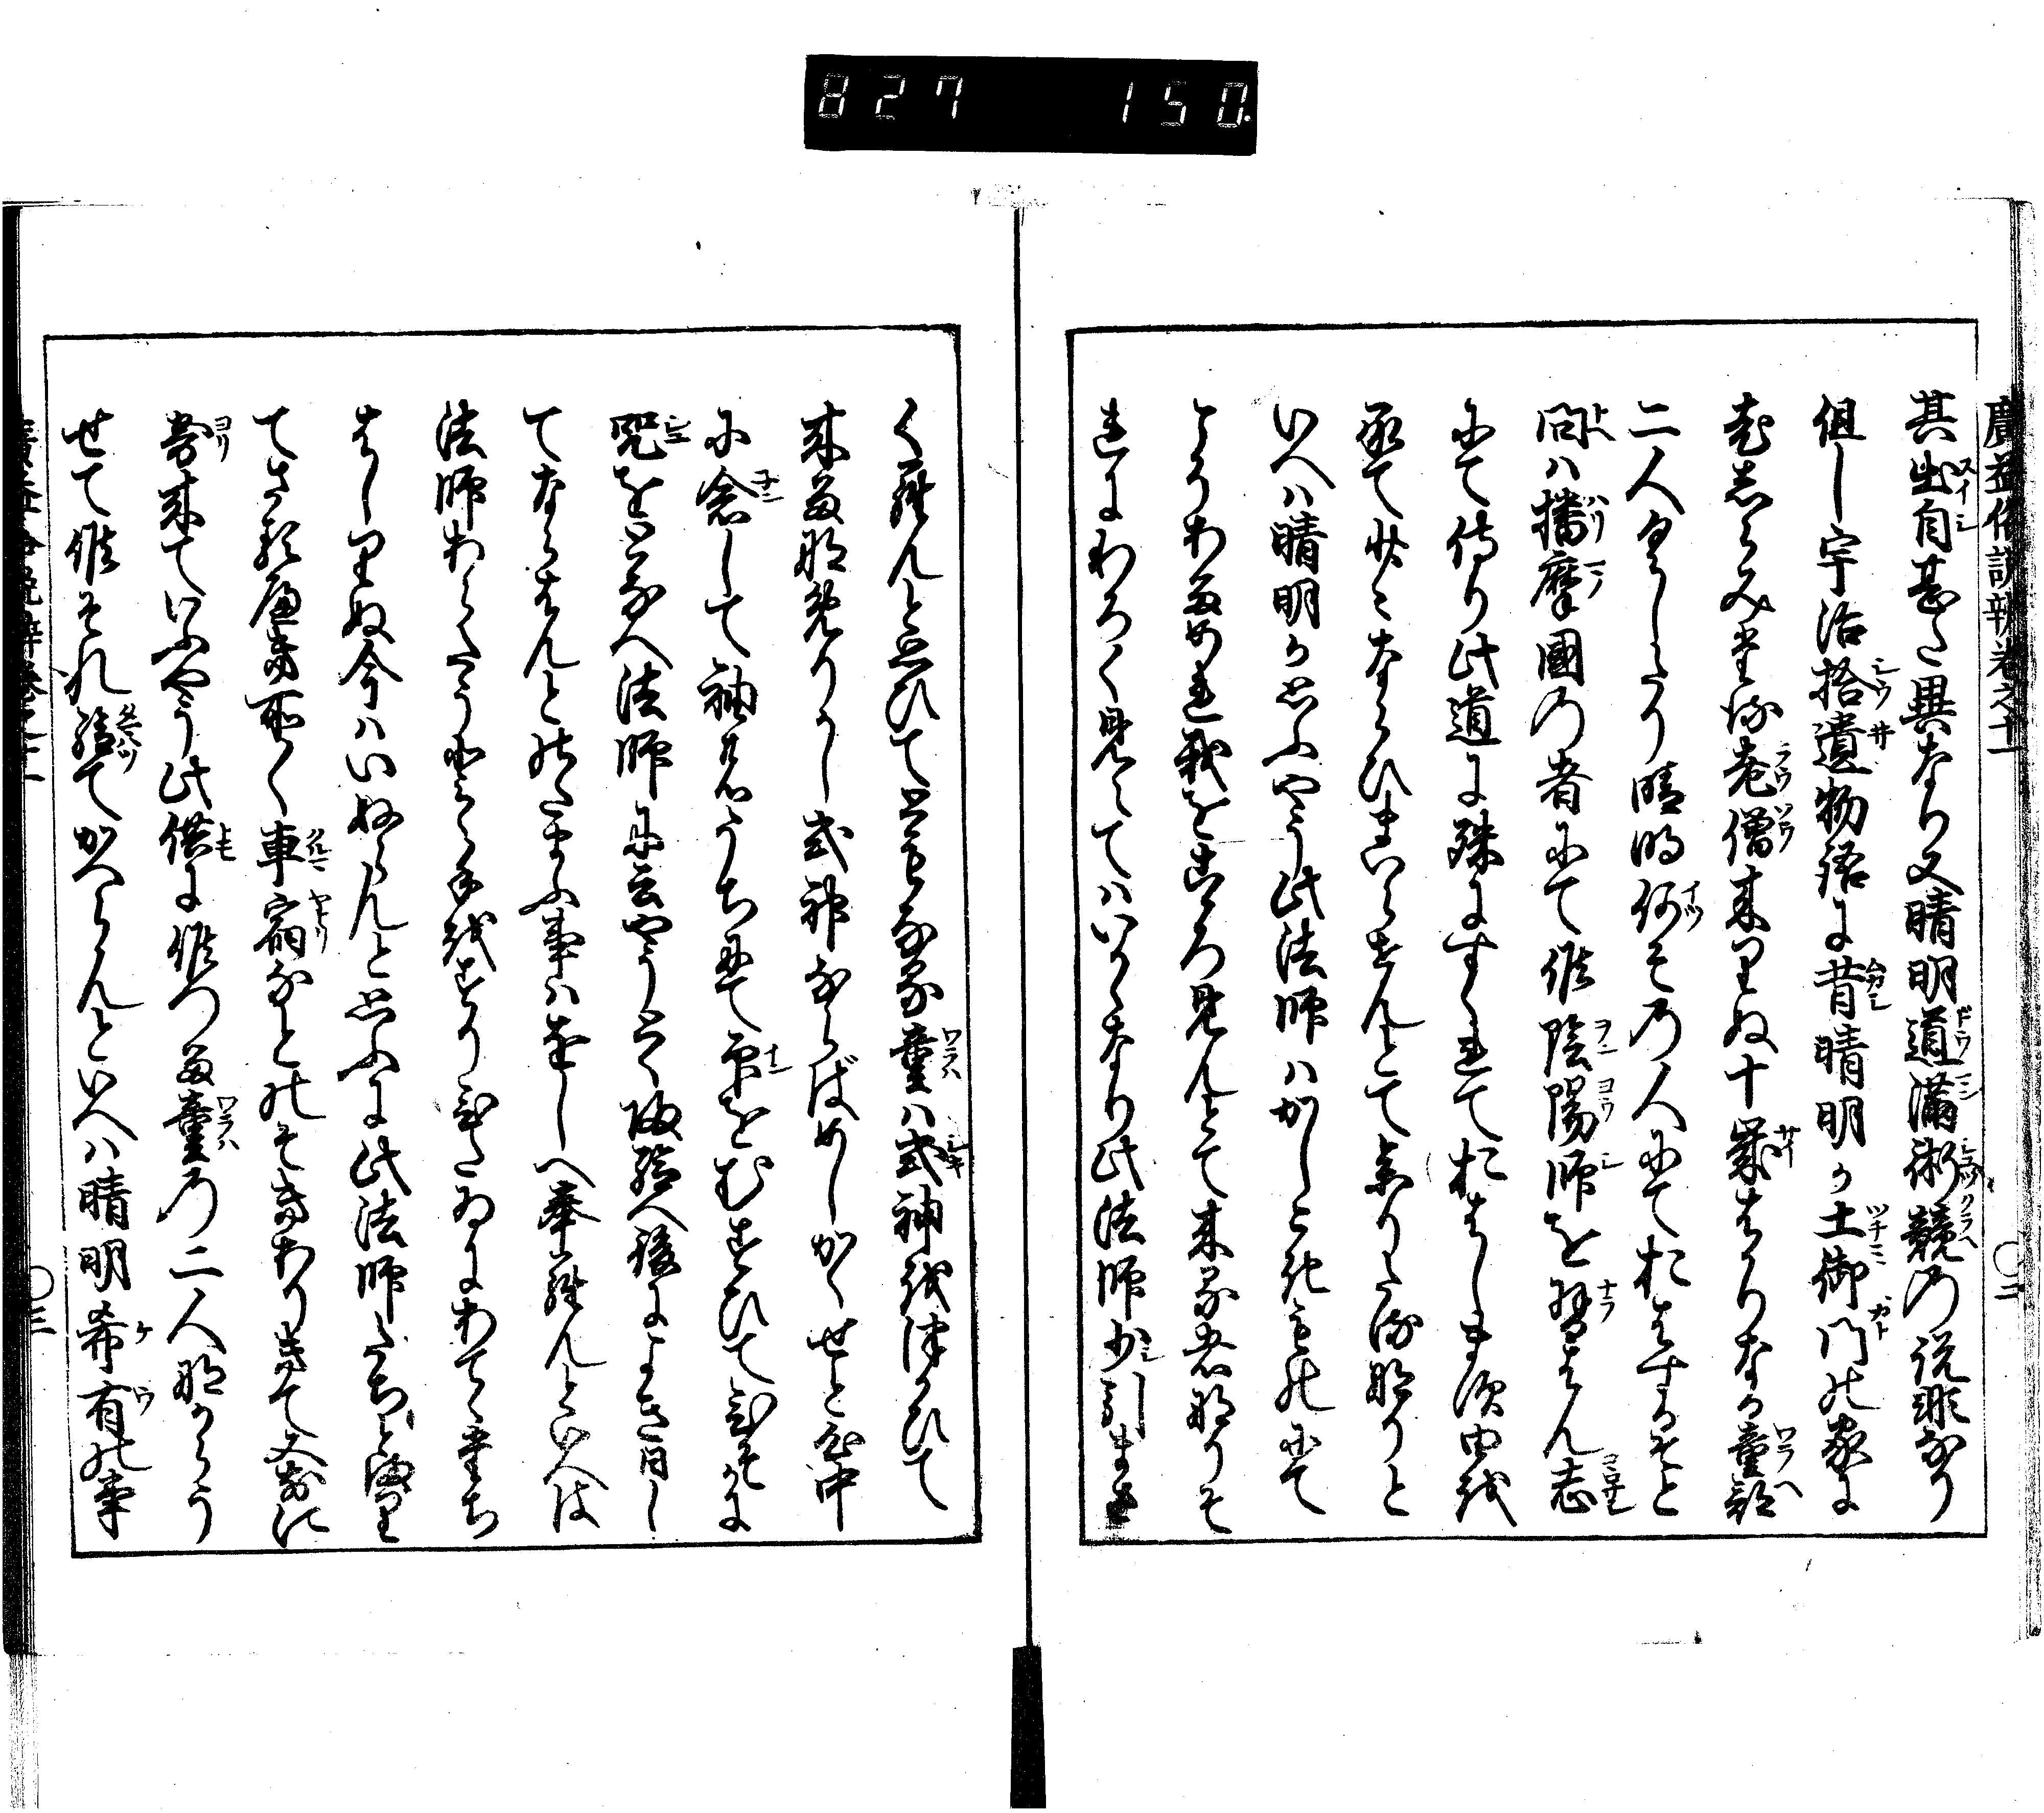 827 150
廣益俗説辨卷之十一
其出自甚た異なり又晴明道滿術競の説非なり
但し宇治拾遺物語に昔晴明か土御門の家に
老しらみたる老僧來りぬ十歳はかりなる童部
二人具したり晴明何その人にておはするそと
問ハ播摩國の者にて候陰陽師を習はん志
にて侍り此道に殊にすくれておはします由を
承て少々ならひまいらせんとて参りたる也と
いへハ晴明か思ふやう此法師ハかしこきものにて
こそあめれ我をこころ見んとて來る者なりそ
れにわろく見えてハいかゝなり此法師少引まさ
くらんと思ひてともなる童ハ式神をつかひて
來るなめりかし式神ならばめしかくせと心中
に念して袖のうちにて印をむすひてひそかに
咒をとなへ法師に云やうとく歸給へ後によき日し
てならはんとのたまふ事ハをしへ奉らんといへは
法師あらたうとと手をすりひたひにあてゝ立ち
はしりぬ今ハいぬらんと思ふに此法師たちと滿り
てさるへき所々車宿なとのそきありきて又前に
寄來ていふやう此供に候つる童の二人なから
せて候それ給てかへらんといへハ晴明希有の事
廣益俗説辨卷之十一
〇三